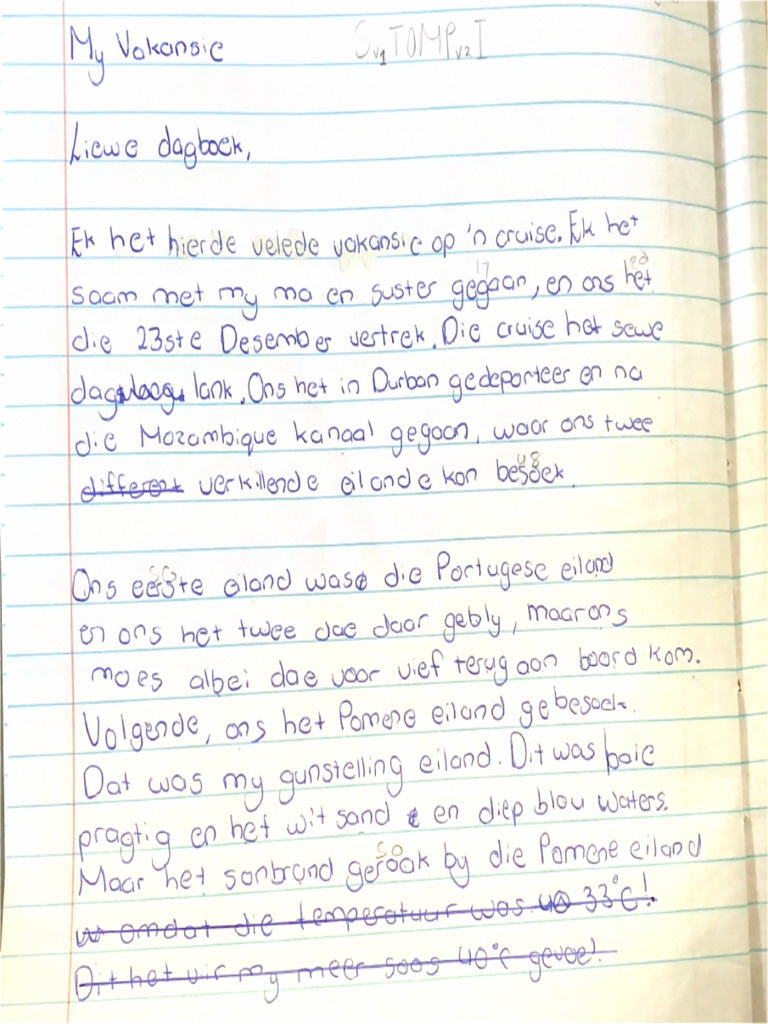 My Vakansie Sv1TOMPv2I
Liewe dagboek,
Ek het hierde velede vakansie op 'n cruise. Ek het
saam met my ma en suster gegaan, en ons het
die 23ste Desember vertrek. Die cruise het sewe
dag lank. Ons het in Durban gedeporteer en na
die Mozambique kanaal gegaan, waar ons twee
different verkillende eilande kon besoek.
Ons eerste eiland was die Portugese eiland
en ons het twee dae daar gebly, maar ons
moes albei dae voor vief terug aan boord kom.
Volgende, ons het Pomene eiland gebesoek.
Dat was my gunstelling eiland. Dit was baie
pragtig en het wit sand en diep blou waters.
Maar het sonbrand geraak by die Pomene eiland
omdat die temperatuur was 40 33°C!
Dit het vir my meer soos 40°C gevoel.